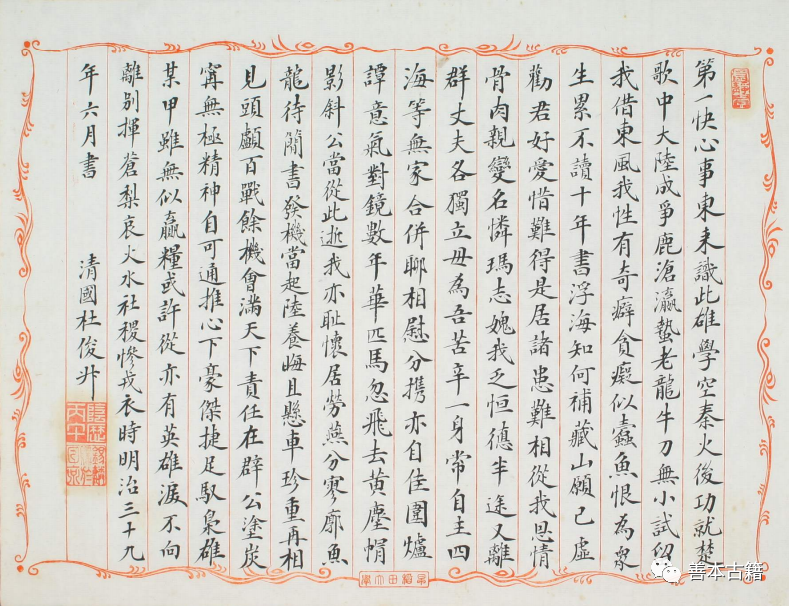 第一快心事東来識此雄學空秦火後功就楚
歌中大陸成爭鹿滄瀛蟄老龍牛刀無小試留
我借東風我性有奇癖貪癡似蠹魚恨為衆
生累不讀十年書浮海知何補藏山願已虛
勸君好愛惜難得是居諸患難相從我恩情
骨肉親變名憐瑪志媿我乏恒德半途又離
群丈夫各獨立毋為吾苦辛一身常自主四
海等無家合併聊相慰分携亦自佳圍爐
譚意氣對鏡數年華匹馬忽飛去黃塵帽
影斜公當從此逝我亦耻懷居勞燕分寥廓魚
龍待簡書發機當起陸養晦且懸車珍重再相
見頭顱百戰餘機會滿天下責任在群公塗炭
甯無極精神自可通推心下豪傑捷足馭梟雄
某甲雖無似贏糧或許從亦有英雄淚不向
離別揮蒼梨哀火水社稷慘戎衣時明治三十九
年六月書
清國杜俊
善本古籍